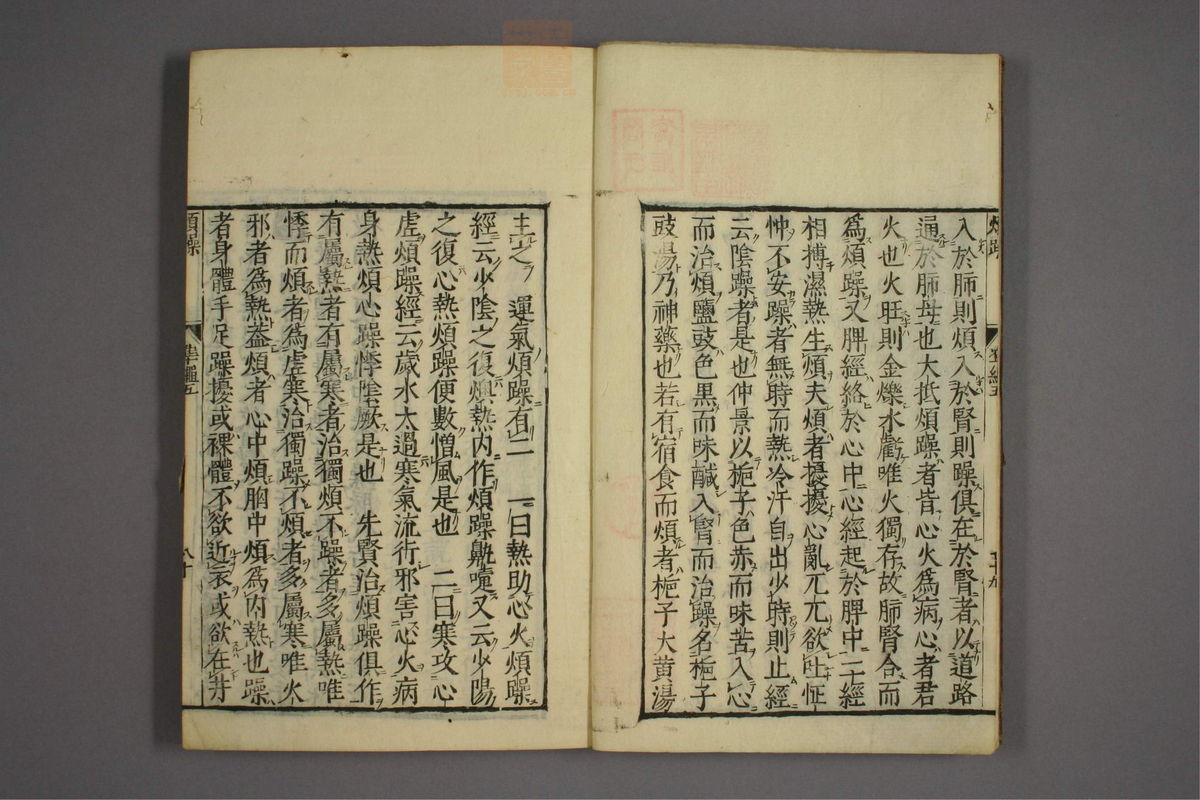 入於肺則煩入於腎則躁俱在於腎者以道路
通於肺母也大抵煩躁者皆心火為病心者君
火也火旺則金爍水虧唯火獨存故肺腎合而
為煩躁又脾經絡於心中心經起於脾中二經
相搏濕熱生煩夫煩者擾擾心亂兀兀欲吐怔
忡不安躁者無時而熱冷汗自出少時則止經
云陰躁者是也仲景以梔子色赤而味苦入心
而治煩鹽豉色黑而味鹹入腎而治躁名梔子
豉湯乃神藥也若有宿食而煩者梔子大黃湯
主之 運氣煩躁有二 一曰熱助心火煩躁
經云少陰之復燠熱內作煩躁鼽嚏又云少陽
之復心熱煩躁便數憎風是也 二曰寒攻心
虛煩躁經云歲水太過寒氣流行邪害心火病
身熱煩心躁悸陰厥是也 先賢治煩躁俱作
有屬熱者有屬寒者治獨煩不躁者多屬熱唯
悸而煩者為虛寒治獨躁不煩者多屬寒唯火
邪者為熱蓋煩者心中煩胸中煩為內熱也躁
者身體手足躁擾或裸體不欲近衣或欲在井
煩躁
準繩五
八十